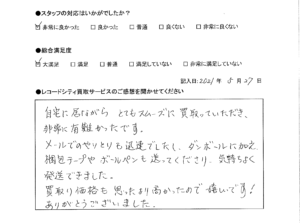 ●スタッフの対応はいかがでしたか？
☑非常に良かった □良かった □普通 □良くない □非常に良くない
●総合満足度
☑大満足 □満足 □普通 □満足していない □非常に満足していない
記入日:2021年 5月27日
●レコードシティ買取サービスのご感想を聞かせてください
自宅に居ながら とてもスムーズに買取っていただき、
非常に有難かったです。
メールでのやりとりも迅速でしたし、ダンボールに加え
梱包テープやボールペンも送ってくださり、気持ちよく
発送できました。
買取り価格も思ったより高かったので嬉しいです!
ありがとうございました。